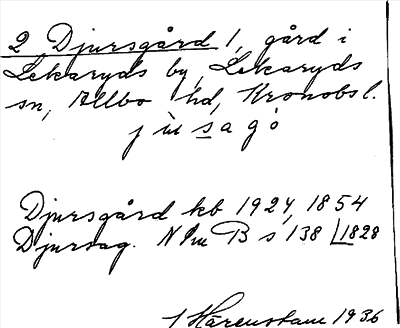 2 Djursgård 1, gård i
Lekaryds by, Lekaryds
sn, Allbo hd, Kronobsl.
Djursgård kb 1924, 1854
Djursag. NPm B s 138 1828
Hårenstam 1936